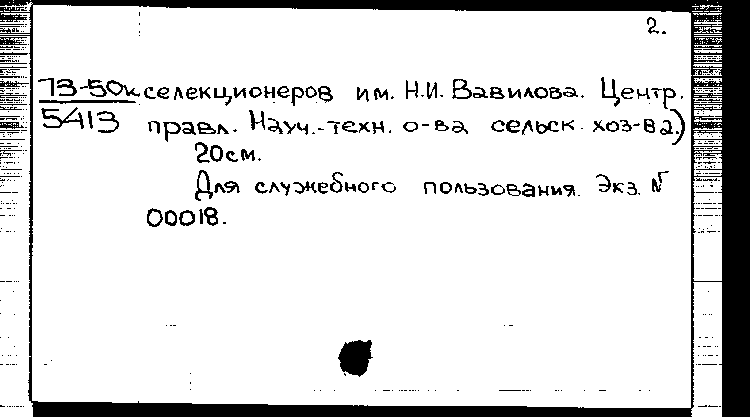 2.
73-50к селекционеров им. Н.И. Вавилова. Центр.
5413 правл. Науч.-техн. о-ва сельск. хоз-ва.)
20см.
Для служебного пользования. Экз. №
00018.